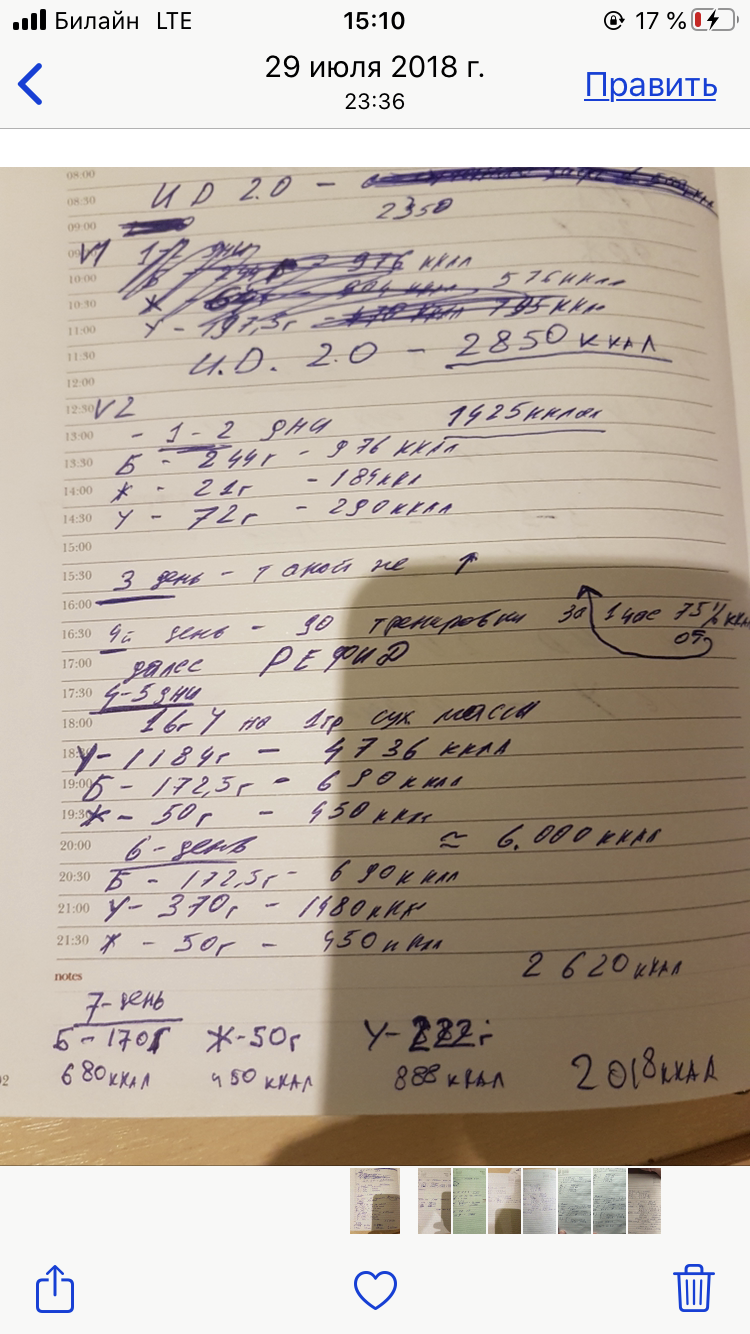 Билайн LTE 15:10 17 %
29 июля 2018 г.
23:36
Править
08:00
08:30 U D 2.0 –
2350
09:00
V1 1-2 дни
10:00 Б - 244г - 976 ккал
10:30 Ж - 576 ккал
11:00 У - 197,5г - 795 ккал
11:30 U.D. 2.0 - 2850 ккал
12:00
12:30 V2
13:00 - 1-2 дни 1425 ккал
13:30 Б - 244г - 976 ккал
14:00 Ж - 21г - 184ккл
14:30 У - 72г - 290ккал
15:00
15:30 3 день - такой же ↑
16:00
16:30 4й день - до тренировки за 1 час 75% ккал
от
17:00 далее РЕФИД
17:30 4-5 дни
18:00 16г У на 1гр сух массы
У - 1184г - 4736 ккал
19:00 Б - 172,5г - 690 ккал
19:30 Ж - 50г - 450 ккал
20:00 6 - день ≈ 6.000 ккал
20:30 Б - 172,5г - 690ккал
21:00 У - 370г - 1480ккал
21:30 Ж - 50г - 450 ккал
2620ккал
notes
7-день
Б - 170г Ж-50г У-222г
680ккал 450 ккал 888 ккал 2018ккал